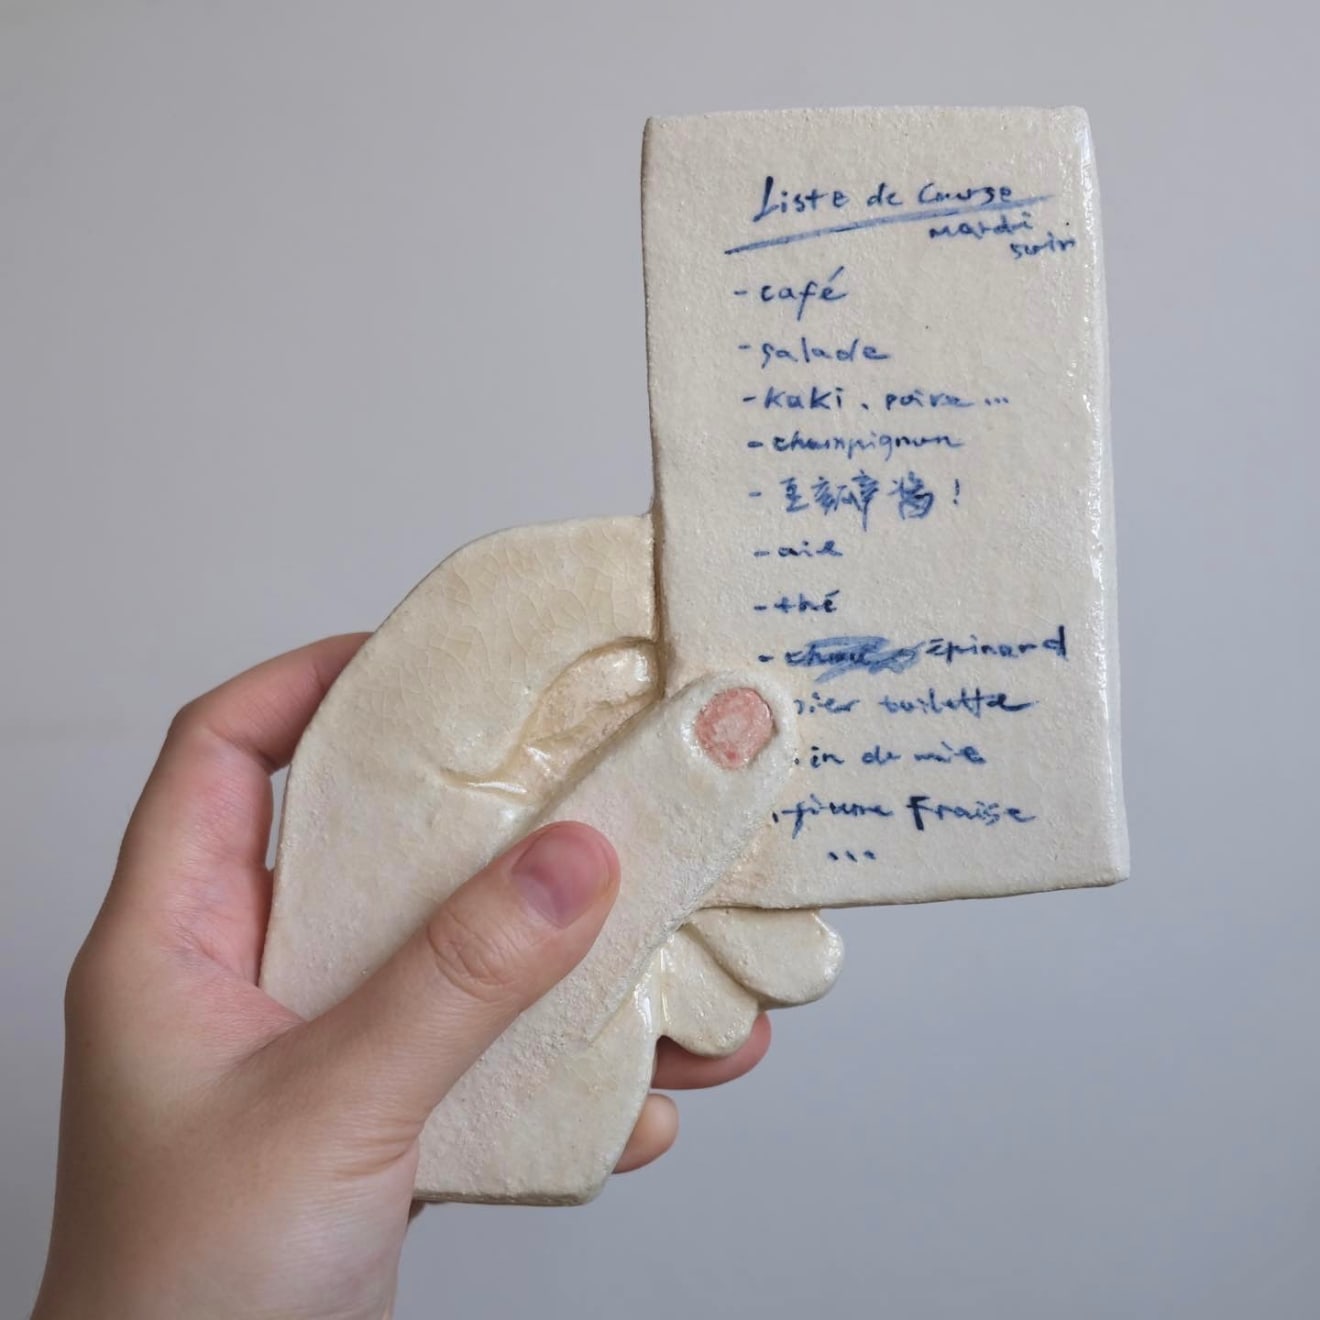 Liste de Course
mardi
soir
- café
- salade
- kaki, poire...
- champignon
- 豆瓣酱！
- ail
- thé
- Epinard
pier toilette
in de mie
Fraise
...